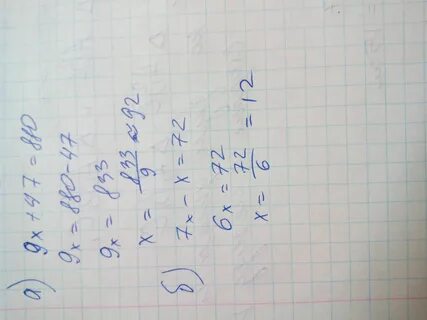 а) 9x+47=880
9x=880-47
9x = 833
x = 833/9 ≈ 92
б) 7x - x = 72
6x = 72
x = 72/6 = 12